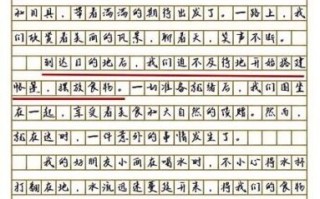 和日具，带着满满的期待出发了。一路上，我
们欣赏着美丽的风景，聊着天，笑声不断。
到达目的地后，我们迫不及待地开始搭建
帐篷，摆放食物。一切准备就绪后，我们围坐
在一起，享受着美食和大自然的馈赠。然而，
就在这时，一件意外的事情发生了。
我的好朋友小丽在喝水时，不小心将水杯
打翻在地，水流迅速蔓延开来，将我们的食物